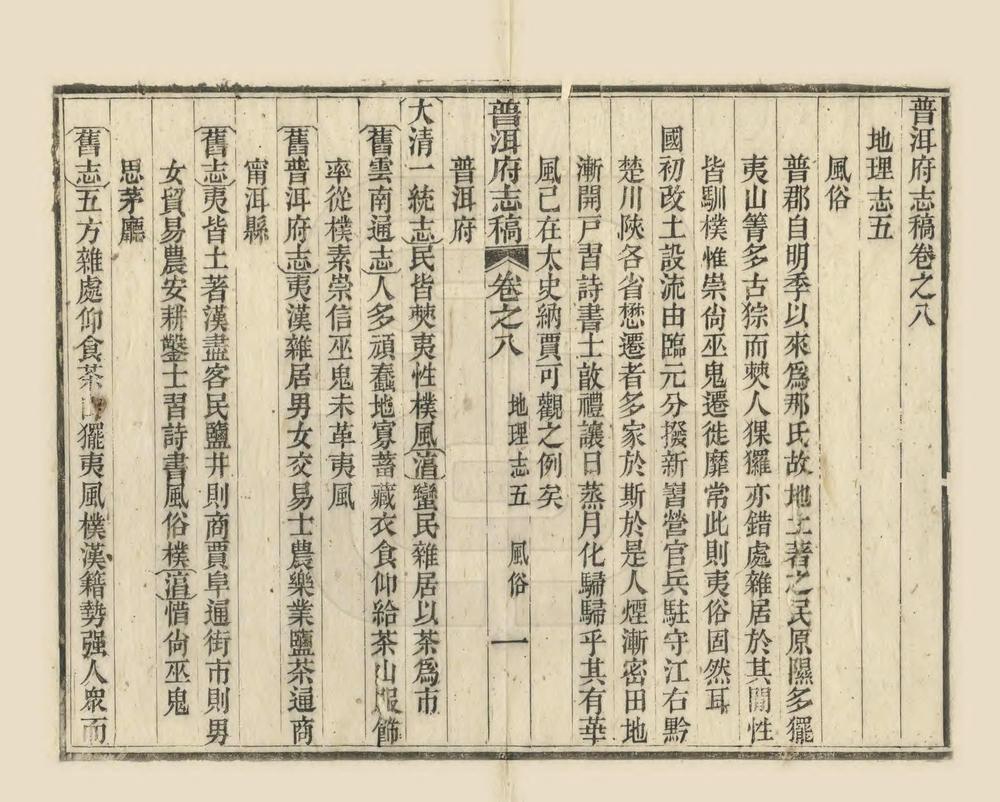 普洱府志稿卷之八
地理志五
風俗
普郡自明季以來爲那氏故地土著之民原隰多擺
夷山箐多古猔而僰人猓玀亦錯處雜居於其閒性
皆馴樸惟崇尙巫鬼遷徙靡常此則夷俗固然耳
國初改土設流由臨元分撥新嶍營官兵駐守江右黔
楚川陝各省懋遷者多家於斯於是人煙漸密田地
漸開戶習詩書士敢禮讓日蒸月化駸駸乎其有華
風已在太史納賈可觀之例矣
普洱府志稿 卷之八 地理志五 風俗 一
普洱府
大清一統志民皆僰夷性樸風渻蠻民雜居以茶爲市
舊雲南通志人多頑蠢地寡蓄藏衣食仰給茶山服飾
率從樸素崇信巫鬼未革夷風
舊普洱府志夷漢雜居男女交易士農樂業鹽茶通商
甯洱縣
舊志夷皆土著漢盡客民鹽井則商賈阜通街市則男
女貿易農安耕鑿士習詩書風俗樸渻惜尙巫鬼
思茅廳
舊志五方雜處仰食茶山擺夷風樸漢籍勢强人衆而